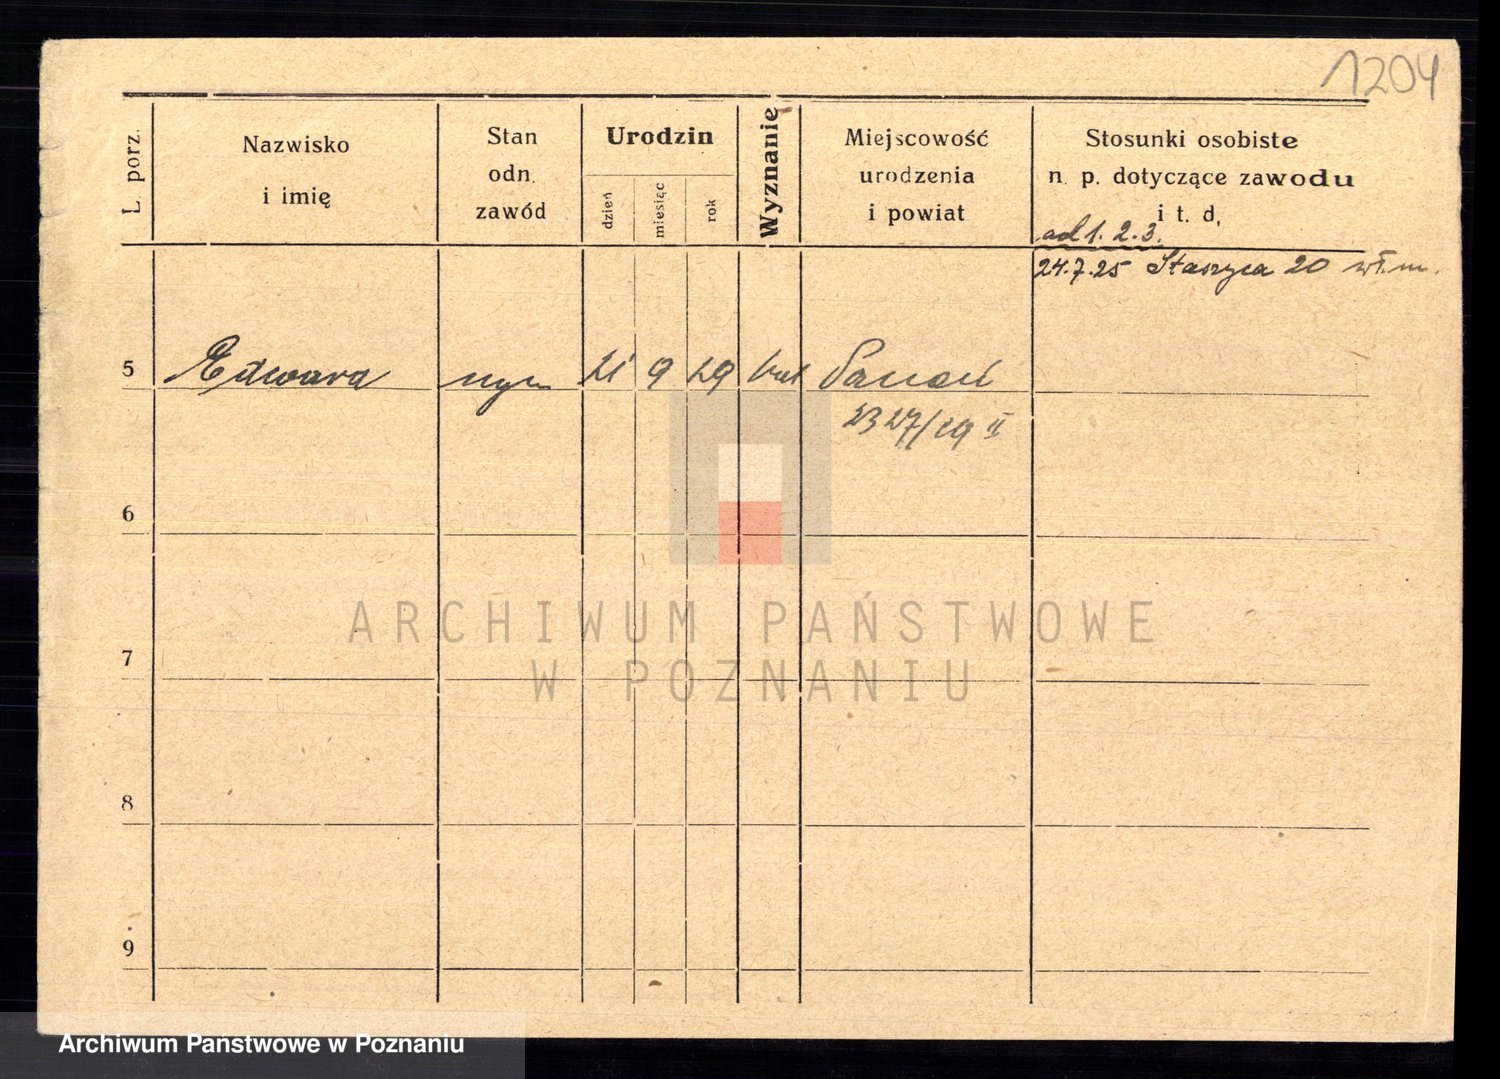 1204
L. porz.
Nazwisko
i imię
Stan
odn.
zawód
Urodzin
dzień
miesiąc
rok
Wyznanie
Miejscowość
urodzenia
i powiat
Stosunki osobiste
n. p. dotyczące zawodu
i t. d,
ad 1. 2. 3.
24.7.25 Staszyca 20 wł. m.
5 Edward 21 9 29
2327/29 II
6
7
8
9
ARCHIWUM PAŃSTWOWE
W POZNANIU
Archiwum Państwowe w Poznaniu